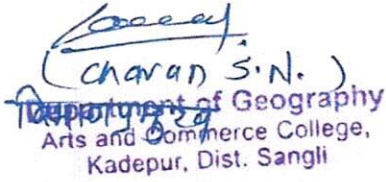 (Chavan S.N.)
Department of Geography
Arts and Commerce College,
Kadepur, Dist. Sangli